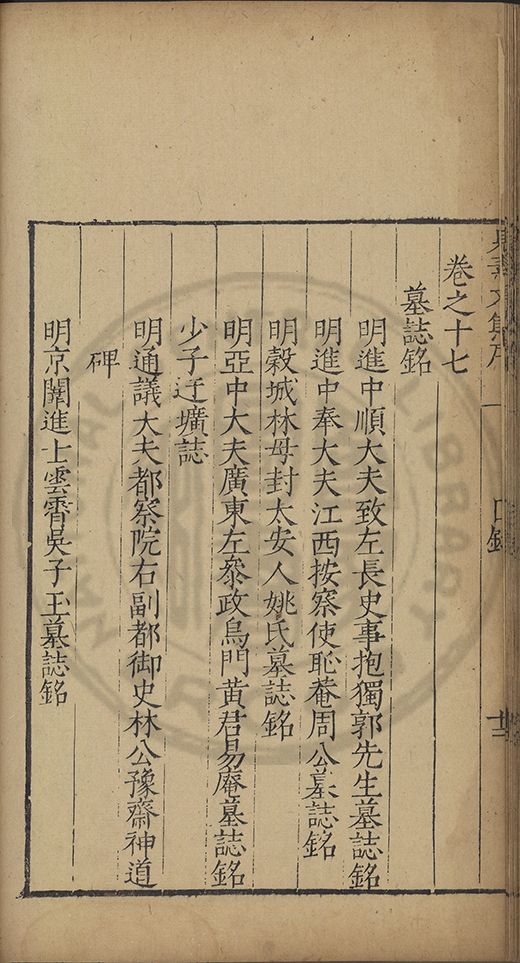 卷之十七
墓誌銘
明進中順大夫致左長史事抱獨郭先生墓誌銘
明進中奉大夫江西按察使恥菴周公墓誌銘
明穀城林母封太安人姚氏墓誌銘
明亞中大夫廣東左叅政鳥門黃君易庵墓誌銘
少子迂壙誌
明通議大夫都察院右副都御史林公豫齋神道
碑
明京闈進士雲霄吳子玉墓誌銘